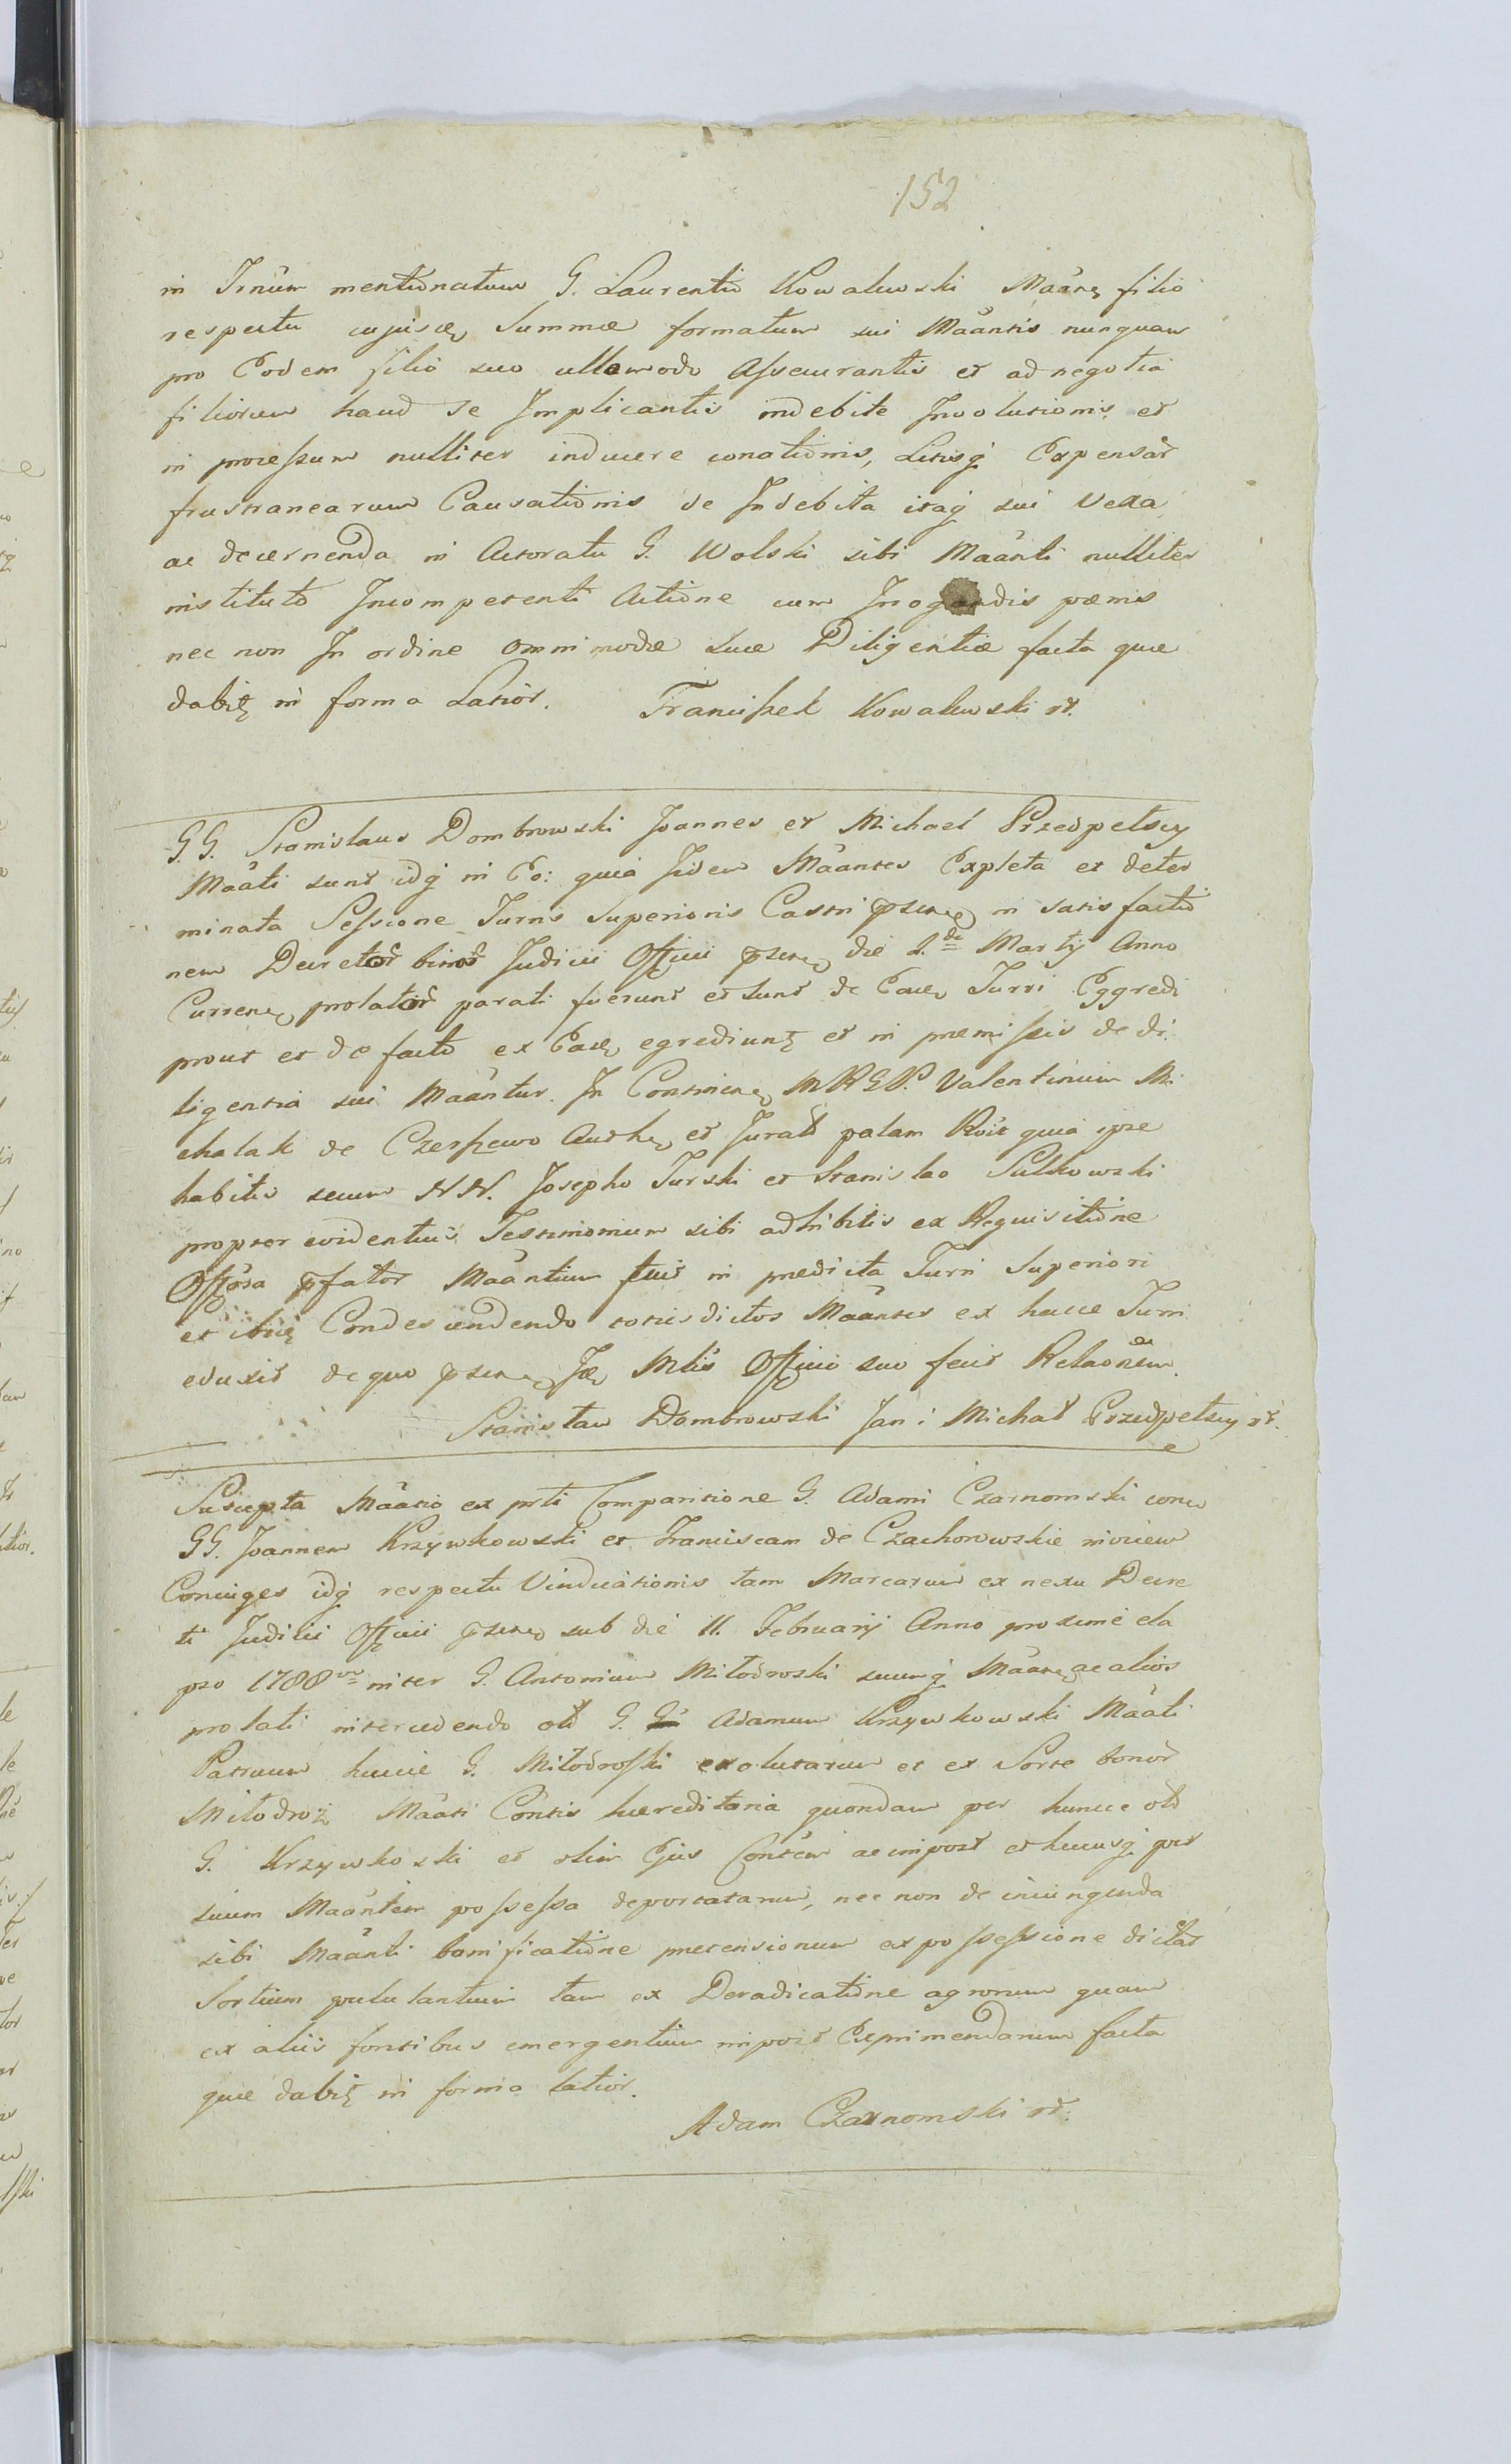 152
in Trnūm mentionatum G. Laurentio Kowalewski Māāns filio
respectu cujusce Summæ formatum sui Māāntis nunquam
pro Eodem filio suo ullomodo Assecurantis et ad negotia
filiorum haud se Implicantis indebite Involutionis et
in processum nulliter inducere conationis, Litisq Expensar
frustranearum Causationis de Indebita itaq sui Vexa
ac decernenda in Actoratu G. Wolski sibi Māānti nulliter
instituto Incompetenti Actione cum Irrogandis pœnis
nec non In ordine omnimodæ suæ Diligentiæ facta quæ
dabit in forma Latior. Franciszek Kowalewski r.
G.G. Stanislaus Dombrowski Joannes et Michael Przedpelscy
Māāti sunt idq in Eo: quia Iidem Māāntes Expleta et deter
minata Sessione Turris Superioris Castri psens in satisfactio
nem Decretor binor Judicii Officii psens die 2.da Martij Anno
Currens prolator parati fuerunt et sunt de Eace Turri Eggredi
prout et de facto ex Eace egrediunt et in præmissis de di
ligentia sui Māāntur. In Continens MRGP. Valentinum Mi
chalak de Czeszewo Auth et Jurat palam Rcit quia ipse
habitis secum NN. Josepho Turski et Stanislao Sulkowski
propter evidentius Testimonium sibi adhibitis ex Requisitione
Offosa pfator Māāntium fuit in prædicta Turri Superiori
et ibiq Condescendendo toties dictos Māāntes ex hacce Turri
eduxit de quo psens Jæ Mltis Officio suo fecit Relaōnem.
Stanisław Dombrowski Jan i Michał Przedpełscy r.
Suscepta Māātio ex prti Comparitione G. Adami Czarnomski conce
GG. Joannem Krzywkowski et Franciscam de Czachorowskie invicem
Coniuges idq respectu Vindicationis tam Marcarum ex nexu Decre
ti Judicii Officii psens sub die 11. Februarij Anno proxime ela
pso 1788vo inter G. Antonium Miłodroski suumq Māāns ac alios
prolati intercedendo olt G. Adamum Krzywkowski Māāti
Patruum huicce G. Miłodroski exolutarum et ex Sorte bonor
Miłodroż Māāti Cōntis hæreditaria quondam per huncce olt
G. Krzywkoski et olim Ejus Cōntem ac impost et hucusq per
suum Māāntem possessa deportatarum, nec non de iniungenda
sibi Māānti bonificatione prætensionum ex possessione dictar
Sortium pululantium tam ex Deradicatione agrorum quam
ex aliis fontibus emergentium impost Exprimendarum facta
quæ dabit in forma latior.
Adam Czarnomski r.